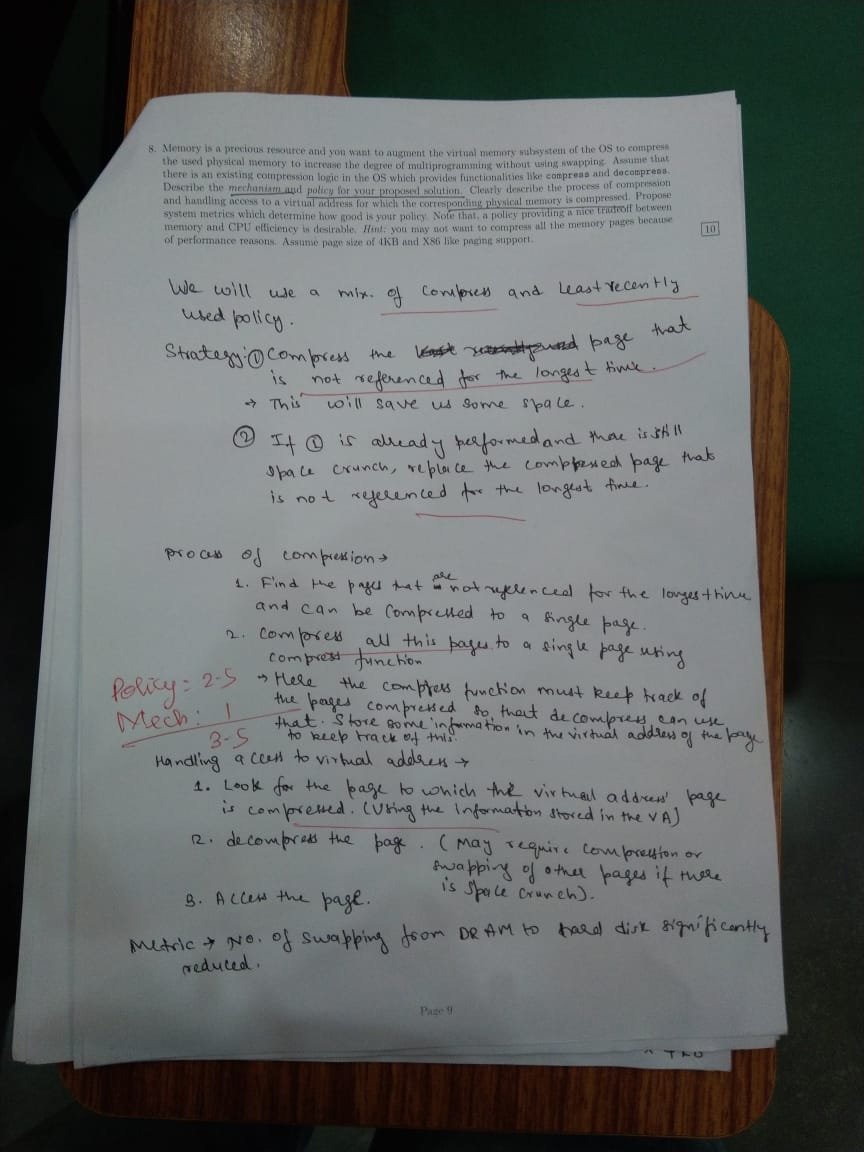 8. Memory is a precious resource and you want to augment the virtual memory subsystem of the OS to compress
the used physical memory to increase the degree of multiprogramming without using swapping. Assume that
there is an existing compression logic in the OS which provides functionalities like compress and decompress.
Describe the mechanism and policy for your proposed solution. Clearly describe the process of compression
and handling access to a virtual address for which the corresponding physical memory is compressed. Propose
system metrics which determine how good is your policy. Note that, a policy providing a nice tradeoff between
memory and CPU efficiency is desirable. Hint: you may not want to compress all the memory pages because
of performance reasons. Assume page size of 4KB and X86 like paging support.
10
We will use a mix. of Compress and Least recently
used policy.
Strategy: ① Compress the page that
is not referenced for the longest time.
→ This will save us some space.
② If ① is already performed and there is still
space crunch, replace the compressed page that
is not referenced for the longest time.
process of compression →
1. Find the pages that are not referenced for the longest time
and can be compressed to a single page.
2. compress all this pages to a single page using
compress function
→ Here the compress function must keep track of
the pages compressed so that decompress can use
that. Store some information in the virtual address of the page
to keep track of this.
Policy: 2.5
Mech: 1
3.5
Handling access to virtual address →
1. Look for the page to which the virtual address' page
is compressed. (Using the Information stored in the VA)
2. decompress the page. (May require compression or
swapping of other pages if there
is space crunch).
3. Access the page.
Metric → No. of swapping from DRAM to hard disk significantly
reduced.
Page 9